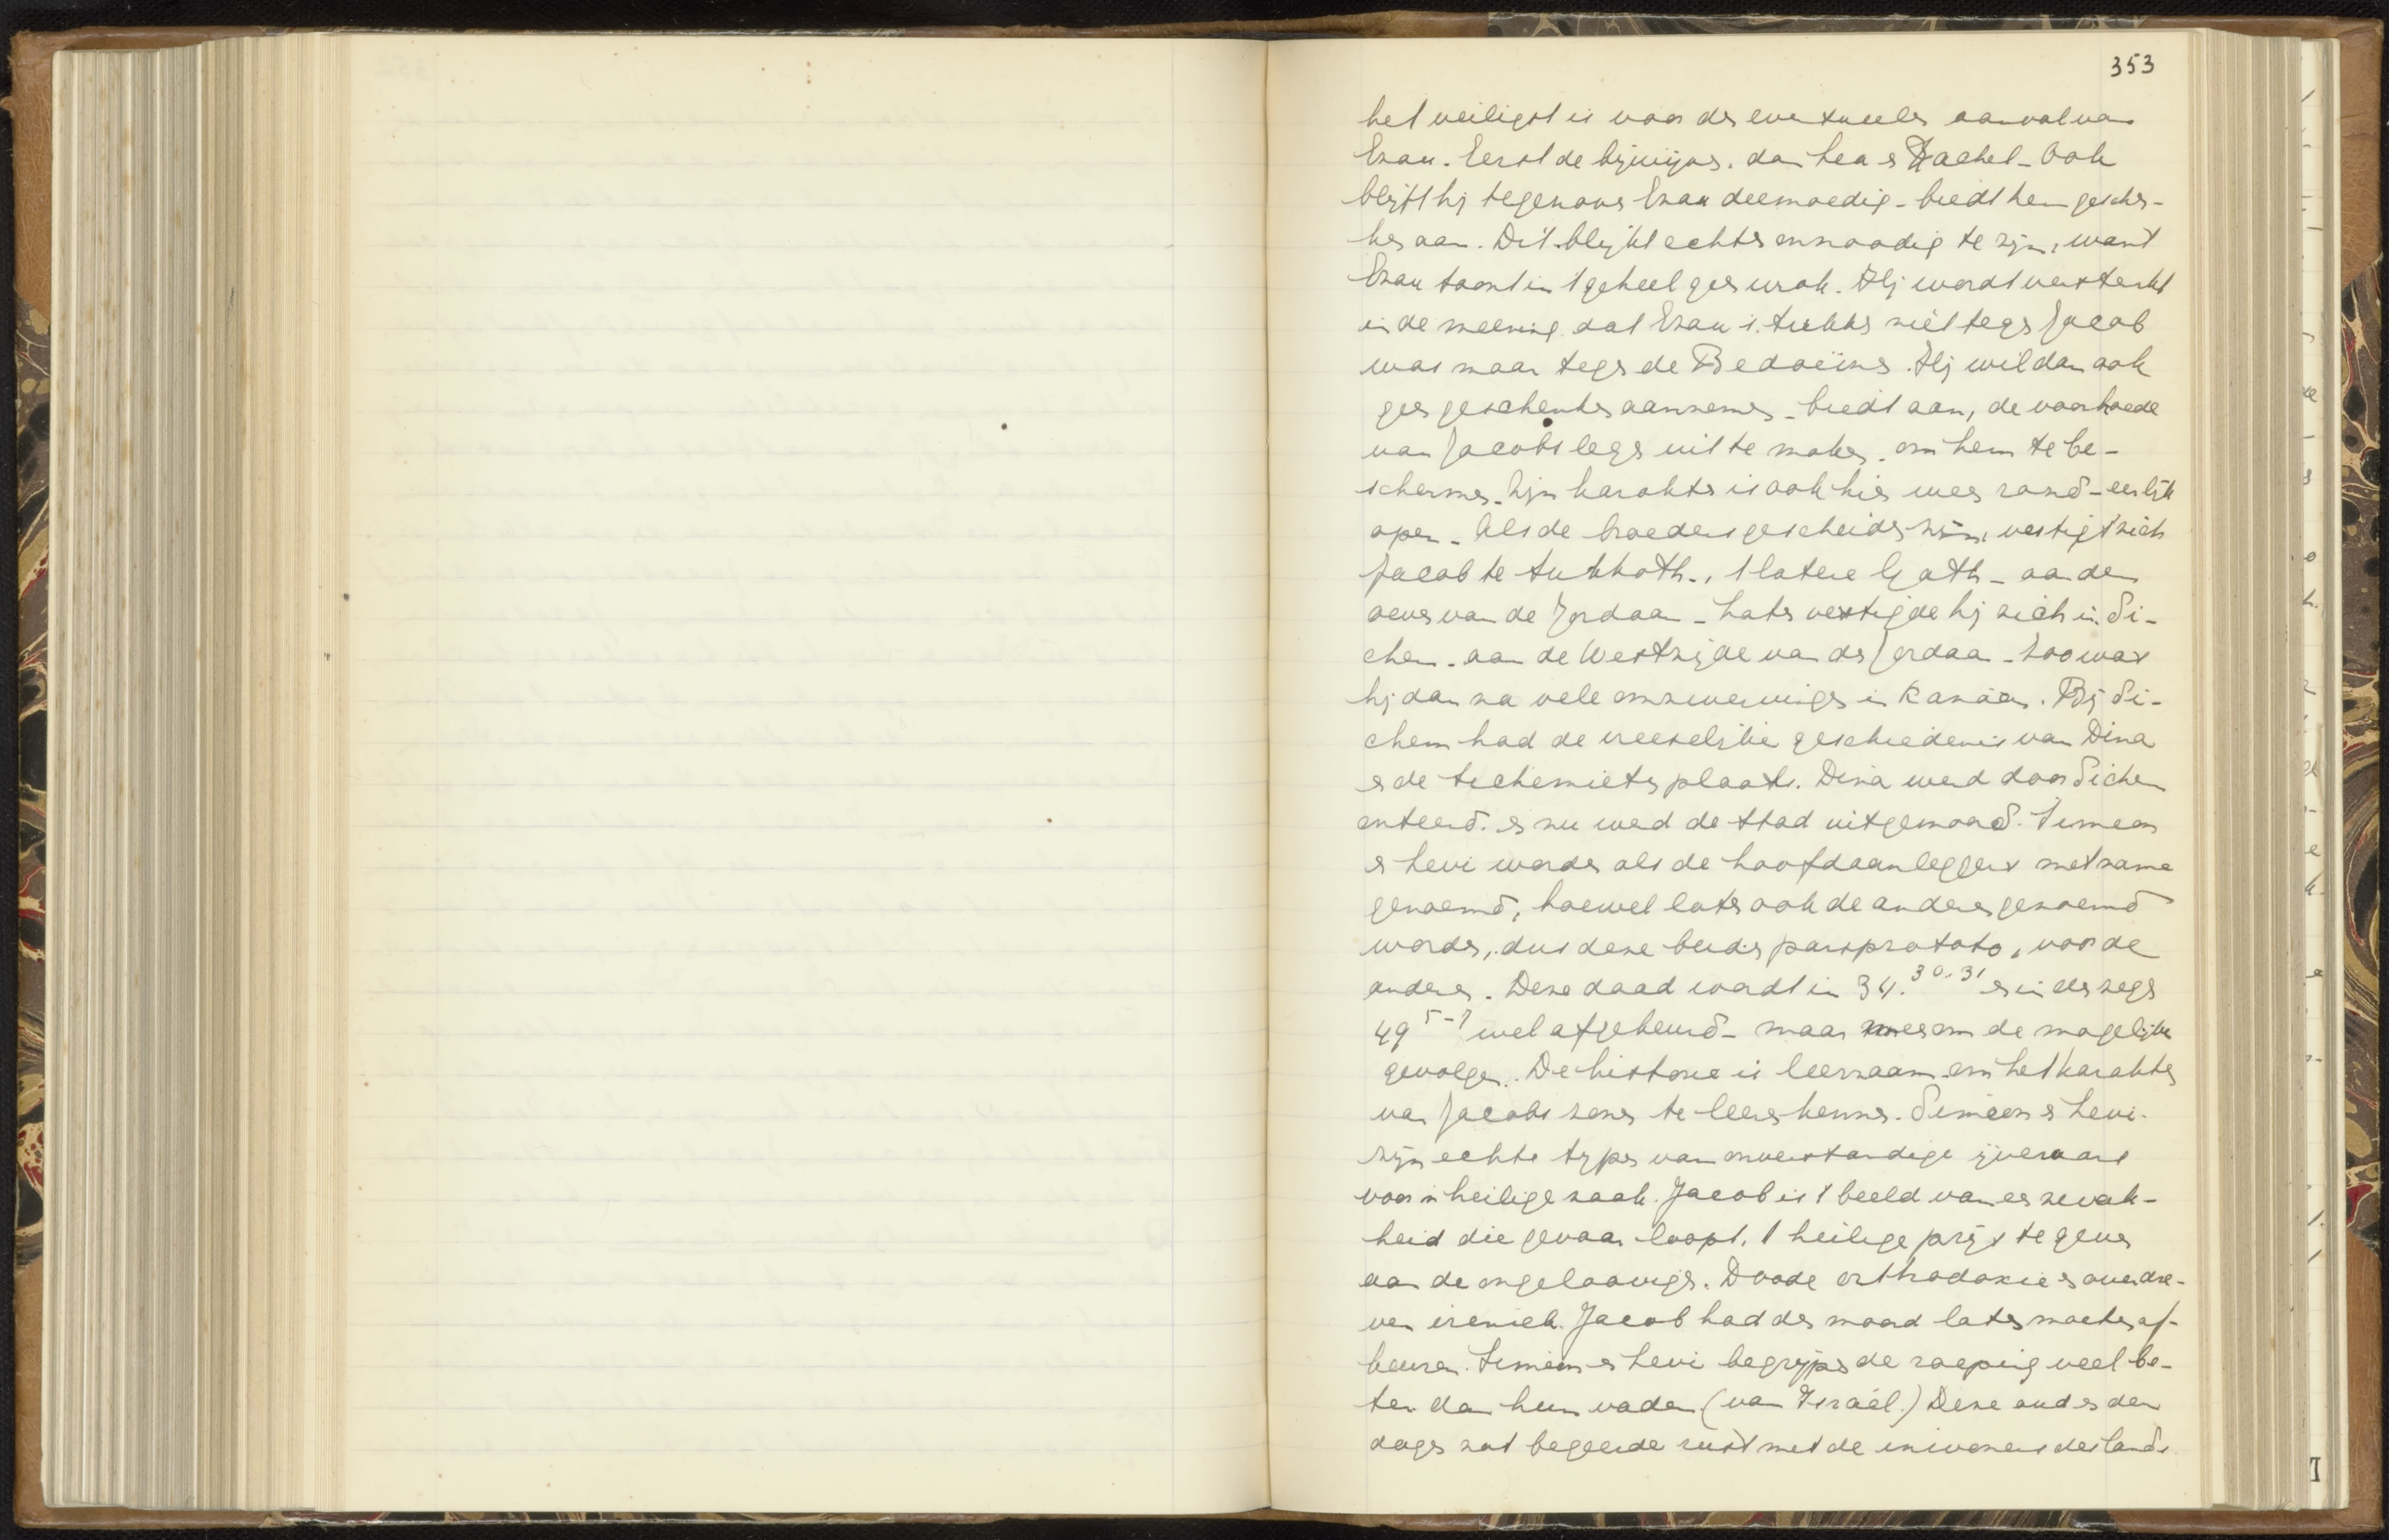 353
het veiligst is voor den eventueelen aanval van
Ezau. Eerst de bijwijven. dan Lea en Rachel - Ook
blijft hij tegenover Ezau deemoedig - biedt hem geschen-
ken aan. Dit blijkt echter onnoodig te zijn, want
Ezau toont in 't geheel geen wrok. Hij wordt versterkt
in de meening dat Ezau's trekken niet tegen Jacob
was maar tegen de Bedoeïnen. Hij wil dan ook
geen geschenken aannemen - biedt aan, de voorhoede
van Jacobs leger uit te maken, om hem te be-
schermen. Zijn karakter is ook hier weer rond - eerlijk
open - Als de broeders gescheiden zijn, vestigt zich
Jacob te Sukkoth -, 't latere Gath - aan den
oever van de Jordaan - Later vestigde hij zich in Si-
chem. aan de Westzijde van de Jordaan - Zoo was
hij dan na vele omzwervingen in Kanaän. Bij Si-
chem had de vreeselijke geschiedenis van Dina
en de Sichemieten plaats. Dina werd door Sichem
onteerd. en nu werd de stad uitgemoord. Simeon
en Levi worden als de hoofdaanleggers met name
genoemd, hoewel later ook de anderen genoemd
worden, dus deze beiden pars pro toto, voor de
anderen. Deze daad wordt in 34.30.31 en in den zegen
49 5-7 wel afgekeurd - maar meer om de mogelijke
gevolgen. De historie is leerzaam om het karakter
van Jacobs zonen te leeren kennen. Simeon en Levi
zijn echte typen van onverstandige ijveraars
voor 'n heilige zaak. Jacob is 't beeld van een zwak-
heid die gevaar loopt, 't heilige prijs te geven
aan de ongeloovigen. Doode orthodoxie en overdre-
ven ireniek. Jacob had den moord later moeten af-
keuren. Simeon en Levi begrijpen de roeping veel be-
ter dan hun vader (van Israël.) Deze oud en der
dagen zat begeerde rust met de inwoners des lands